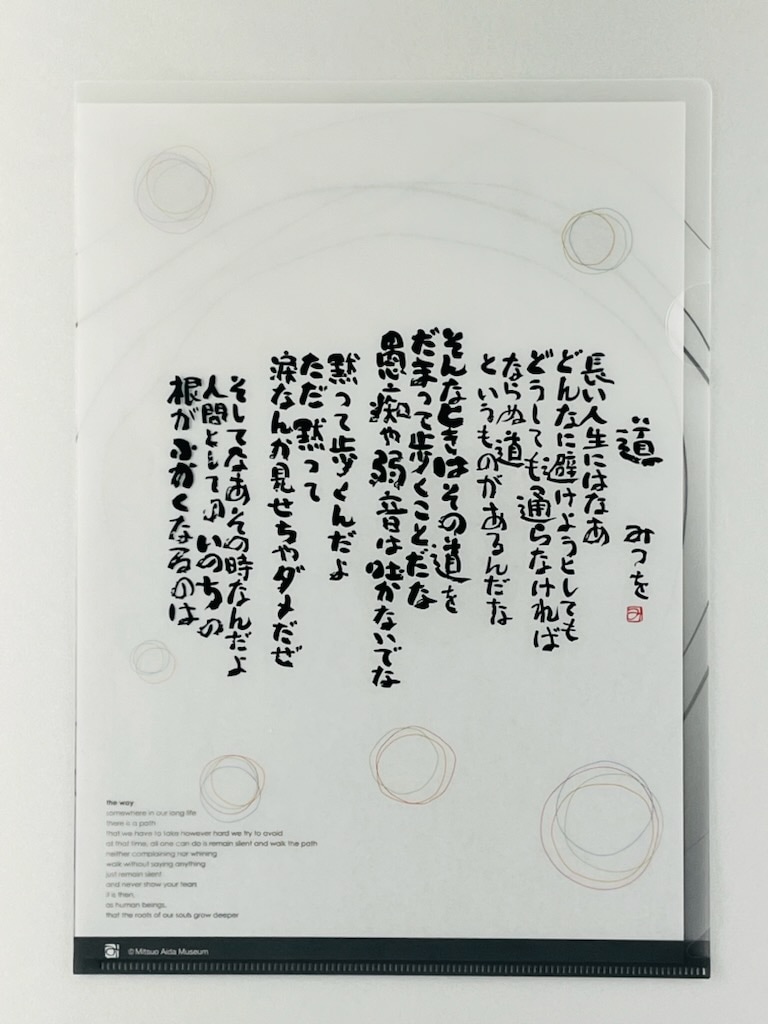 道
みつを
長い人生にはなあ
どんなに避けようとしても
どうしても通らなければ
ならぬ道
というものがあるんだな
そんなときはその道を
だまって歩くことだな
愚痴や弱音は吐かないでな
黙って歩くんだよ
ただ黙って
涙なんか見せちゃダメだぜ
そしてなあその時なんだよ
人間としてのいのちの
根がふかくなるのは
the way
somewhere in our long life
there is a path
that we have to take however hard we try to avoid
at that time, all one can do is remain silent and walk the path
neither complaining nor whining
walk without saying anything
just remain silent
and never show your tears
it is then,
as human beings,
that the roots of our souls grow deeper
©Mitsuo Aida Museum